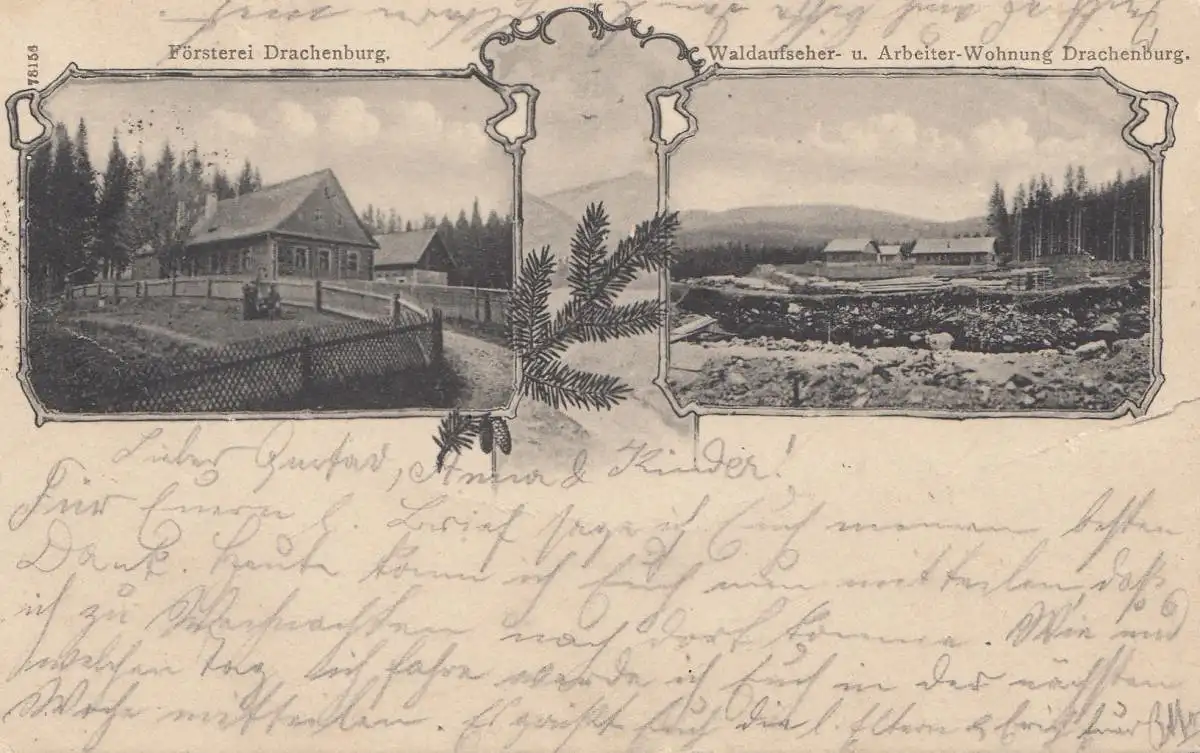 Försterei Drachenburg.
Waldaufseher- u. Arbeiter-Wohnung Drachenburg.
78156
Lieber Gustav, Anna & Kinder!
Für Euern l. Brief sage ich Euch meinen besten
Dank. Heute kann ich Euch nun mitteilen, daß
ich zu Weihnachten nach dort komme. Wie und
welchen Tag ich fahre werde ich Euch in der nächsten
Woche mitteilen. Es grüßt Euch die l. Eltern & Erich